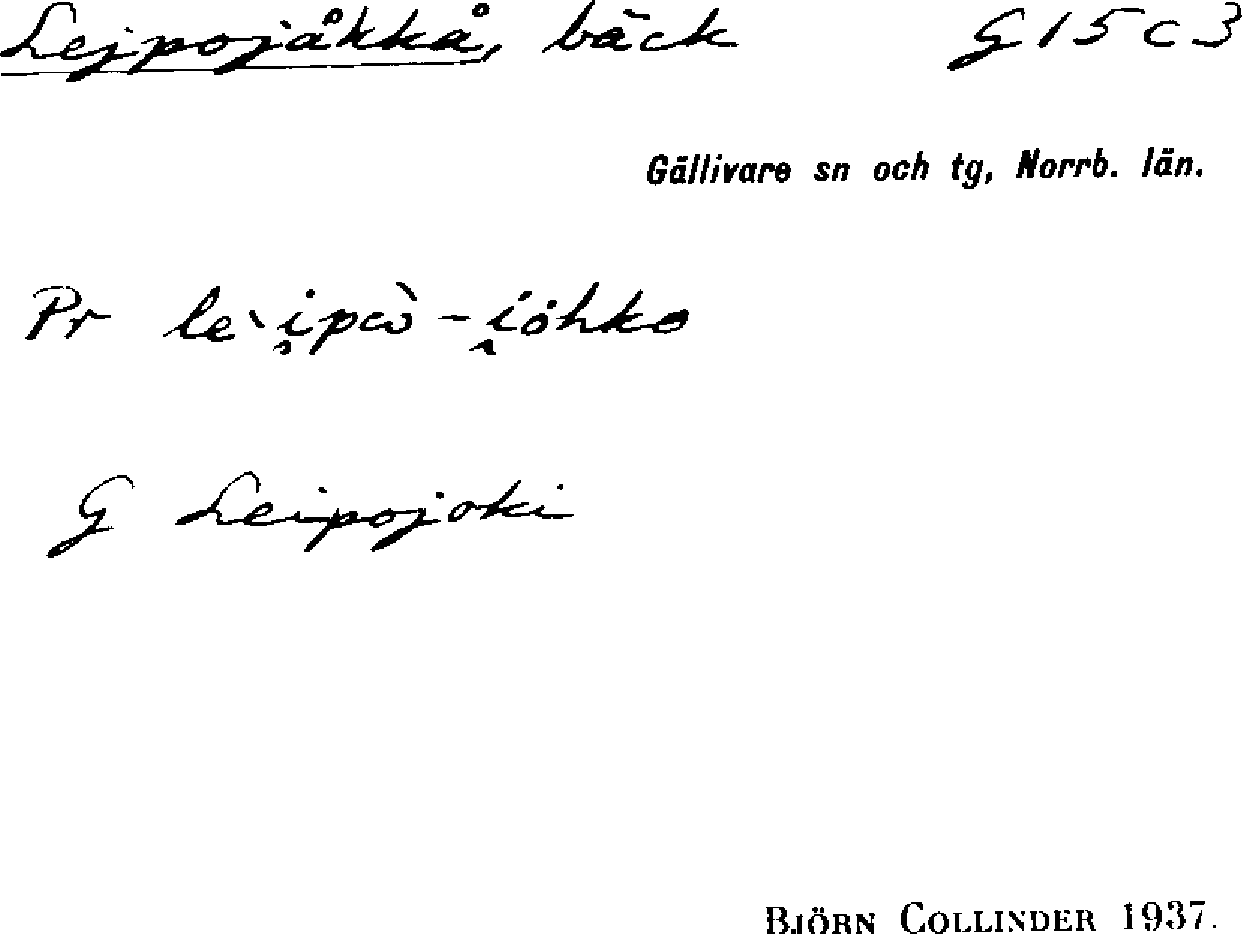 Lejpojåkkå, bäck G 15 c 3
Gällivare sn och tg, Norrb. län.
Pr le`i̯pὼ-i̯ȯhko
G Leipojoki
BJÖRN COLLINDER 1937.